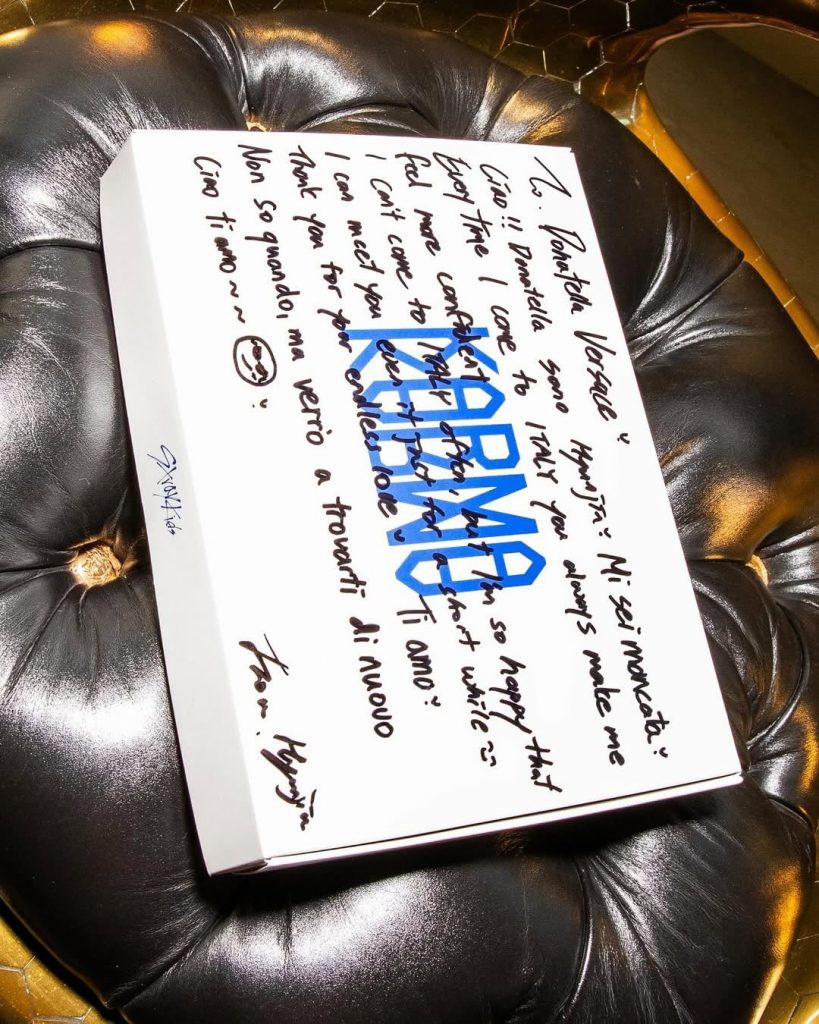 To. Donatella Versace
Ciao!! Donatella sono Hyunjin Mi sei mancata
Every time I come to ITALY you always make me
feel more confident
I can't come to ITALY often, but I'm so happy that
I can meet you even it just for a short while
Thank you for your endless love Ti amo
Non so quando, ma verrò a trovarti di nuovo
Ciao ti amo~~
From. Hyunjin
KARMA
KARMA
Stray Kids